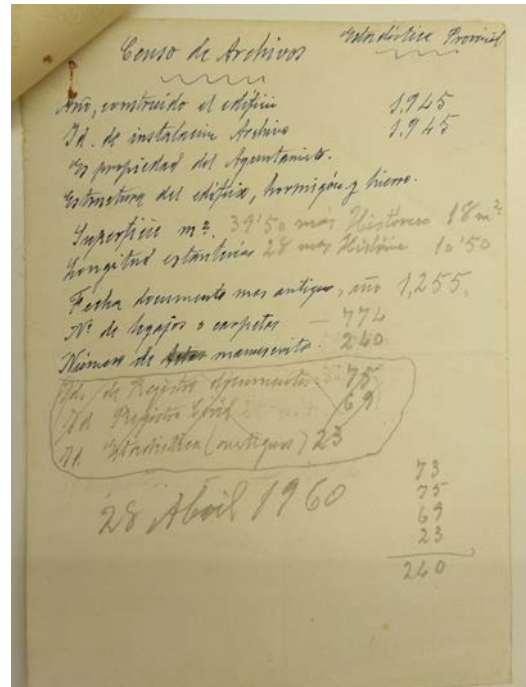 Censo de Archivos
Estadística Provincial
Año, construido el edificio 1.945
Id. de instalación Archivo 1.945
Es propiedad del Ayuntamiento.
Estructura del edificio, hormigón y hierro.
Superficie m². 39'50 más Histórico 18 m²
Longitud estanterías 28 mas Histórico 10'50
Fecha documento mas antiguo, año 1,255.
Nº de legajos o carpetas — 774
Número de manuscritos. 240
Id. de Registro documentos 75
Id Registro Civil 69
Id Estadística (antiguas) 23
28 Abril 1960
73
75
69
23
240